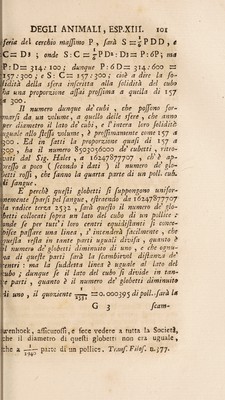 DEGLI ANIMALI, ESP.XIII. 101
feria del cerchio massimo P, sarà S = PDD, e
C = D³; onde S:C = PD³:D³ = P:6P; ma
P:D = 314:100; dunque P:6D = 314:600 =
157:300; e S:C = 157:300; cioè a dire la so-
lidità della sfera inscritta alla solidità del cubo
ha una proporzione assai prossima a quella di 157
a 300.
Il numero dunque de' cubi, che possono for-
marsi da un volume, a quello delle sfere, che anno
per diametro il lato de' cubi, e l'intera loro solidità
uguale allo stesso volume, è prossimamente come 157 a
300. Ed in fatti la proporzione quasi di 157 a
300, ha il numero 8503056000 de' cubetti, ritro-
vati dal Sig. Hales, a 16247877707, ch'è ap-
presso a poco (secondo i dati) il numero de' glo-
betti rossi, che fanno la quarta parte di un poll. cub.
di sangue.
E perchè questi globetti si suppongono unifor-
memente sparsi pel sangue, estraendo da 16247877707
la radice terza 2532, sarà questo il numero de' glo-
betti collocati sopra un lato del cubo di un pollice:
onde se per tutt'i loro centri equidistanti si conce-
pisse passare una linea, s'intenderà facilmente, che
questa resta in tante parti uguali divisa, quanto è
il numero de' globetti diminuito di uno, e che ognu-
na di queste parti sarà la scambievol distanza de'
centri; ma la suddetta linea è uguale al lato del
cubo; dunque se il lato del cubo si divide in tan-
te parti, quanto è il numero de' globetti diminuito
di uno, il quoziente 1/2531 = 0.000395 di poll. sarà la
G 3 scam-
wenhoek, assicurossi, e fece vedere a tutta la Società,
che il diametro di questi globetti non era uguale,
che a 1/1940 parte di un pollice. Trans. Filos. n.377.